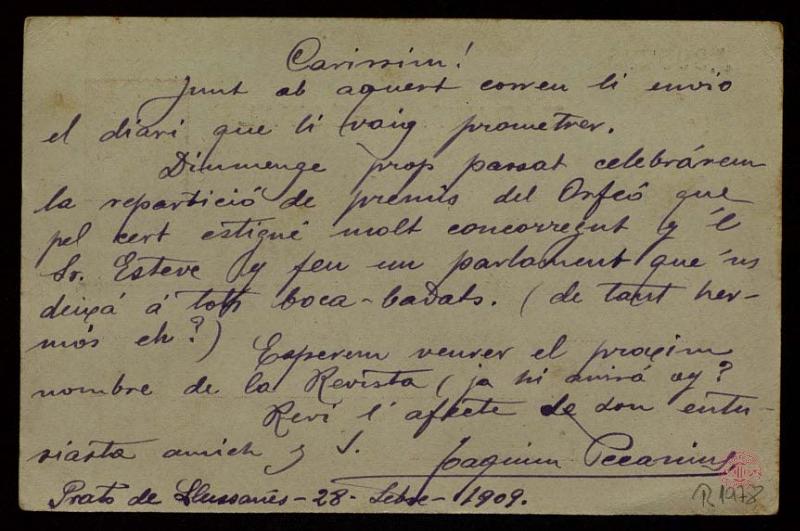 Carissim!
Junt ab aquest correu li envio
el diari que li vaig prometrer.
Diumenge prop passat celebrárem
la repartició de premis del Orfeó que
pel cert estigué molt concorregut y 'l
Sr. Esteve y feu un parlament que 'ns
deixá á tots boca-badats. (de tant her-
mós eh?)
Esperem veurer el proxim
nombre de la Revista (ja hi anirá oy?
Revi l'afecte de son entu-
siasta amich y S.
Joaquim
Prats de Llussanés - 28 - Setbre - 1909.
R 1978